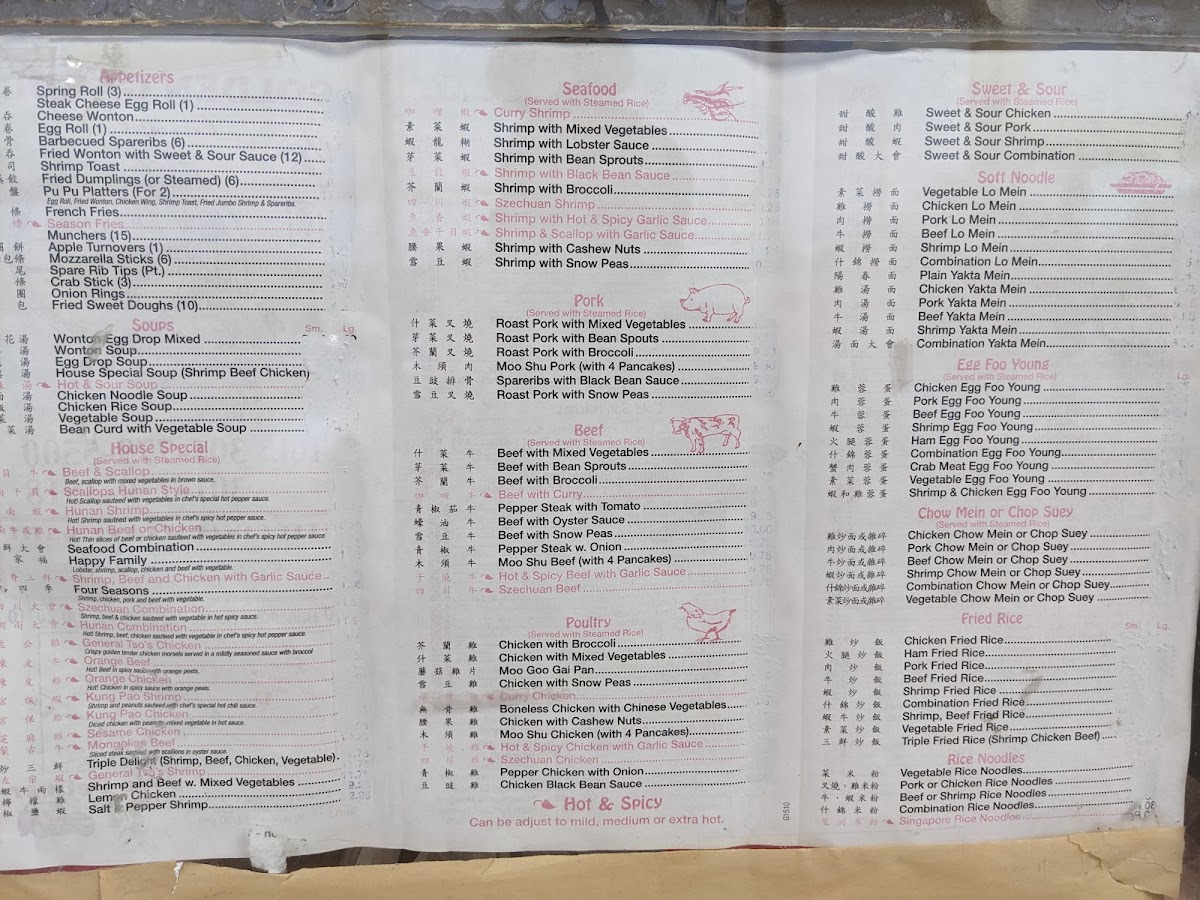 Appetizers
卷 Spring Roll (3)
Steak Cheese Egg Roll (1)
吞 Cheese Wonton
卷 Egg Roll (1)
骨 Barbecued Spareribs (6)
吞 Fried Wonton with Sweet & Sour Sauce (12)
司 Shrimp Toast
餃 Fried Dumplings (or Steamed) (6)
盤 Pu Pu Platters (For 2)
Egg Roll, Fried Wonton, Chicken Wing, Shrimp Toast, Fried Jumbo Shrimp & Spareribs.
條 French Fries
條 Season Fries
Munchers (15)
餅 Apple Turnovers (1)
包條 Mozzarella Sticks (6)
尾 Spare Rib Tips (Pt.)
條 Crab Stick (3)
圈 Onion Rings
包 Fried Sweet Doughs (10)
Soups Sm. Lg.
花湯 Wonton Egg Drop Mixed
湯 Wonton Soup
湯 Egg Drop Soup
湯 House Special Soup (Shrimp Beef Chicken)
湯 Hot & Sour Soup
湯 Chicken Noodle Soup
湯 Chicken Rice Soup
湯 Vegetable Soup
菜湯 Bean Curd with Vegetable Soup
House Special
(Served with Steamed Rice)
貝牛 Beef & Scallop
Beef, scallop with mixed vegetables in brown sauce.
南干貝 Scallops Hunan Style
Hot! Scallop sauteed with vegetables in chef's special hot pepper sauce.
南蝦 Hunan Shrimp
Hot! Shrimp sauteed with vegetables in chef's spicy hot pepper sauce.
南牛或雞 Hunan Beef or Chicken
Hot! Thin slices of beef or chicken sauteed with vegetables in chef's spicy hot pepper sauce.
鮮大會 Seafood Combination
家福 Happy Family
Lobster, shrimp, scallop, chicken and beef with vegetable.
香三鮮 Shrimp, Beef and Chicken with Garlic Sauce
四季 Four Seasons
Shrimp, chicken, pork and beef with vegetable.
川大會 Szechuan Combination
Shrimp, beef & chicken sauteed with vegetable in hot spicy sauce.
南大會 Hunan Combination
Hot! Shrimp, beef, chicken sauteed with vegetable in chef's spicy hot pepper sauce.
公雞 General Tso's Chicken
Crispy golden tender chicken morsels served in a mildly seasoned sauce with broccoli
皮牛 Orange Beef
Hot! Beef in spicy sauce with orange peels.
皮雞 Orange Chicken
Hot! Chicken in spicy sauce with orange peels.
宮保蝦 Kung Pao Shrimp
Shrimp and peanuts sauteed with chef's special hot chili sauce.
宮保雞 Kung Pao Chicken
Diced chicken with peanuts mixed vegetable in hot sauce.
芝麻雞 Sesame Chicken
蒙古牛 Mongolian Beef
Sliced steak sauteed with scallions in oyster sauce.
炒三鮮 Triple Delight (Shrimp, Beef, Chicken, Vegetable)
左宗蝦 General Tso's Shrimp
蝦牛兩樣 Shrimp and Beef w. Mixed Vegetables
檸檬雞 Lemon Chicken
椒鹽蝦 Salt Pepper Shrimp
Seafood
(Served with Steamed Rice)
咖哩蝦 Curry Shrimp
素菜蝦 Shrimp with Mixed Vegetables
蝦龍糊 Shrimp with Lobster Sauce
芽菜蝦 Shrimp with Bean Sprouts
豆豉蝦 Shrimp with Black Bean Sauce
芥蘭蝦 Shrimp with Broccoli
四川蝦 Szechuan Shrimp
Shrimp with Hot & Spicy Garlic Sauce
魚香干貝蝦 Shrimp & Scallop with Garlic Sauce
腰果蝦 Shrimp with Cashew Nuts
雪豆蝦 Shrimp with Snow Peas
Pork
(Served with Steamed Rice)
什菜叉燒 Roast Pork with Mixed Vegetables
芽菜叉燒 Roast Pork with Bean Spouts
芥蘭叉燒 Roast Pork with Broccoli
木須肉 Moo Shu Pork (with 4 Pancakes)
豆豉排骨 Spareribs with Black Bean Sauce
雪豆叉燒 Roast Pork with Snow Peas
Beef
(Served with Steamed Rice)
什菜牛 Beef with Mixed Vegetables
芽菜牛 Beef with Bean Sprouts
芥蘭牛 Beef with Broccoli
咖哩牛 Beef with Curry
青椒茄牛 Pepper Steak with Tomato
蠔油牛 Beef with Oyster Sauce
雪豆牛 Beef with Snow Peas
青椒牛 Pepper Steak w. Onion
木須牛 Moo Shu Beef (with 4 Pancakes)
干燒牛 Hot & Spicy Beef with Garlic Sauce
四川牛 Szechuan Beef
Poultry
(Served with Steamed Rice)
芥蘭雞 Chicken with Broccoli
什菜雞 Chicken with Mixed Vegetables
蘑菇雞片 Moo Goo Gai Pan
雪豆雞 Chicken with Snow Peas
Curry Chicken
無骨雞 Boneless Chicken with Chinese Vegetables
腰果雞 Chicken with Cashew Nuts
木須雞 Moo Shu Chicken (with 4 Pancakes)
干燒雞 Hot & Spicy Chicken with Garlic Sauce
四川雞 Szechuan Chicken
青椒雞 Pepper Chicken with Onion
豆豉雞 Chicken Black Bean Sauce
Hot & Spicy
Can be adjust to mild, medium or extra hot.
G1510
Sweet & Sour
(Served with Steamed Rice)
甜酸雞 Sweet & Sour Chicken
甜酸肉 Sweet & Sour Pork
甜酸蝦 Sweet & Sour Shrimp
甜酸大會 Sweet & Sour Combination
Soft Noodle
素菜撈面 Vegetable Lo Mein
雞撈面 Chicken Lo Mein
肉撈面 Pork Lo Mein
牛撈面 Beef Lo Mein
蝦撈面 Shrimp Lo Mein
什錦撈面 Combination Lo Mein
陽春面 Plain Yakta Mein
雞湯面 Chicken Yakta Mein
肉湯面 Pork Yakta Mein
牛湯面 Beef Yakta Mein
蝦湯面 Shrimp Yakta Mein
湯面大會 Combination Yakta Mein
Egg Foo Young
(Served with Steamed Rice) Lg.
雞蓉蛋 Chicken Egg Foo Young
肉蓉蛋 Pork Egg Foo Young
牛蓉蛋 Beef Egg Foo Young
蝦蓉蛋 Shrimp Egg Foo Young
火腿蓉蛋 Ham Egg Foo Young
什錦蓉蛋 Combination Egg Foo Young
蟹肉蓉蛋 Crab Meat Egg Foo Young
素菜蓉蛋 Vegetable Egg Foo Young
蝦和雞蓉蛋 Shrimp & Chicken Egg Foo Young
Chow Mein or Chop Suey
(Served with Steamed Rice)
雞炒面或雜碎 Chicken Chow Mein or Chop Suey
肉炒面或雜碎 Pork Chow Mein or Chop Suey
牛炒面或雜碎 Beef Chow Mein or Chop Suey
蝦炒面或雜碎 Shrimp Chow Mein or Chop Suey
什錦炒面或雜碎 Combination Chow Mein or Chop Suey
素菜炒面或雜碎 Vegetable Chow Mein or Chop Suey
Fried Rice
Sm. Lg.
雞炒飯 Chicken Fried Rice
火腿炒飯 Ham Fried Rice
肉炒飯 Pork Fried Rice
牛炒飯 Beef Fried Rice
蝦炒飯 Shrimp Fried Rice
什錦炒飯 Combination Fried Rice
蝦牛炒飯 Shrimp, Beef Fried Rice
素菜炒飯 Vegetable Fried Rice
三鮮炒飯 Triple Fried Rice (Shrimp Chicken Beef)
Rice Noodles
菜米粉 Vegetable Rice Noodles
叉燒,雞米粉 Pork or Chicken Rice Noodles
牛,蝦米粉 Beef or Shrimp Rice Noodles
什錦米粉 Combination Rice Noodles
星洲米粉 Singapore Rice Noodles